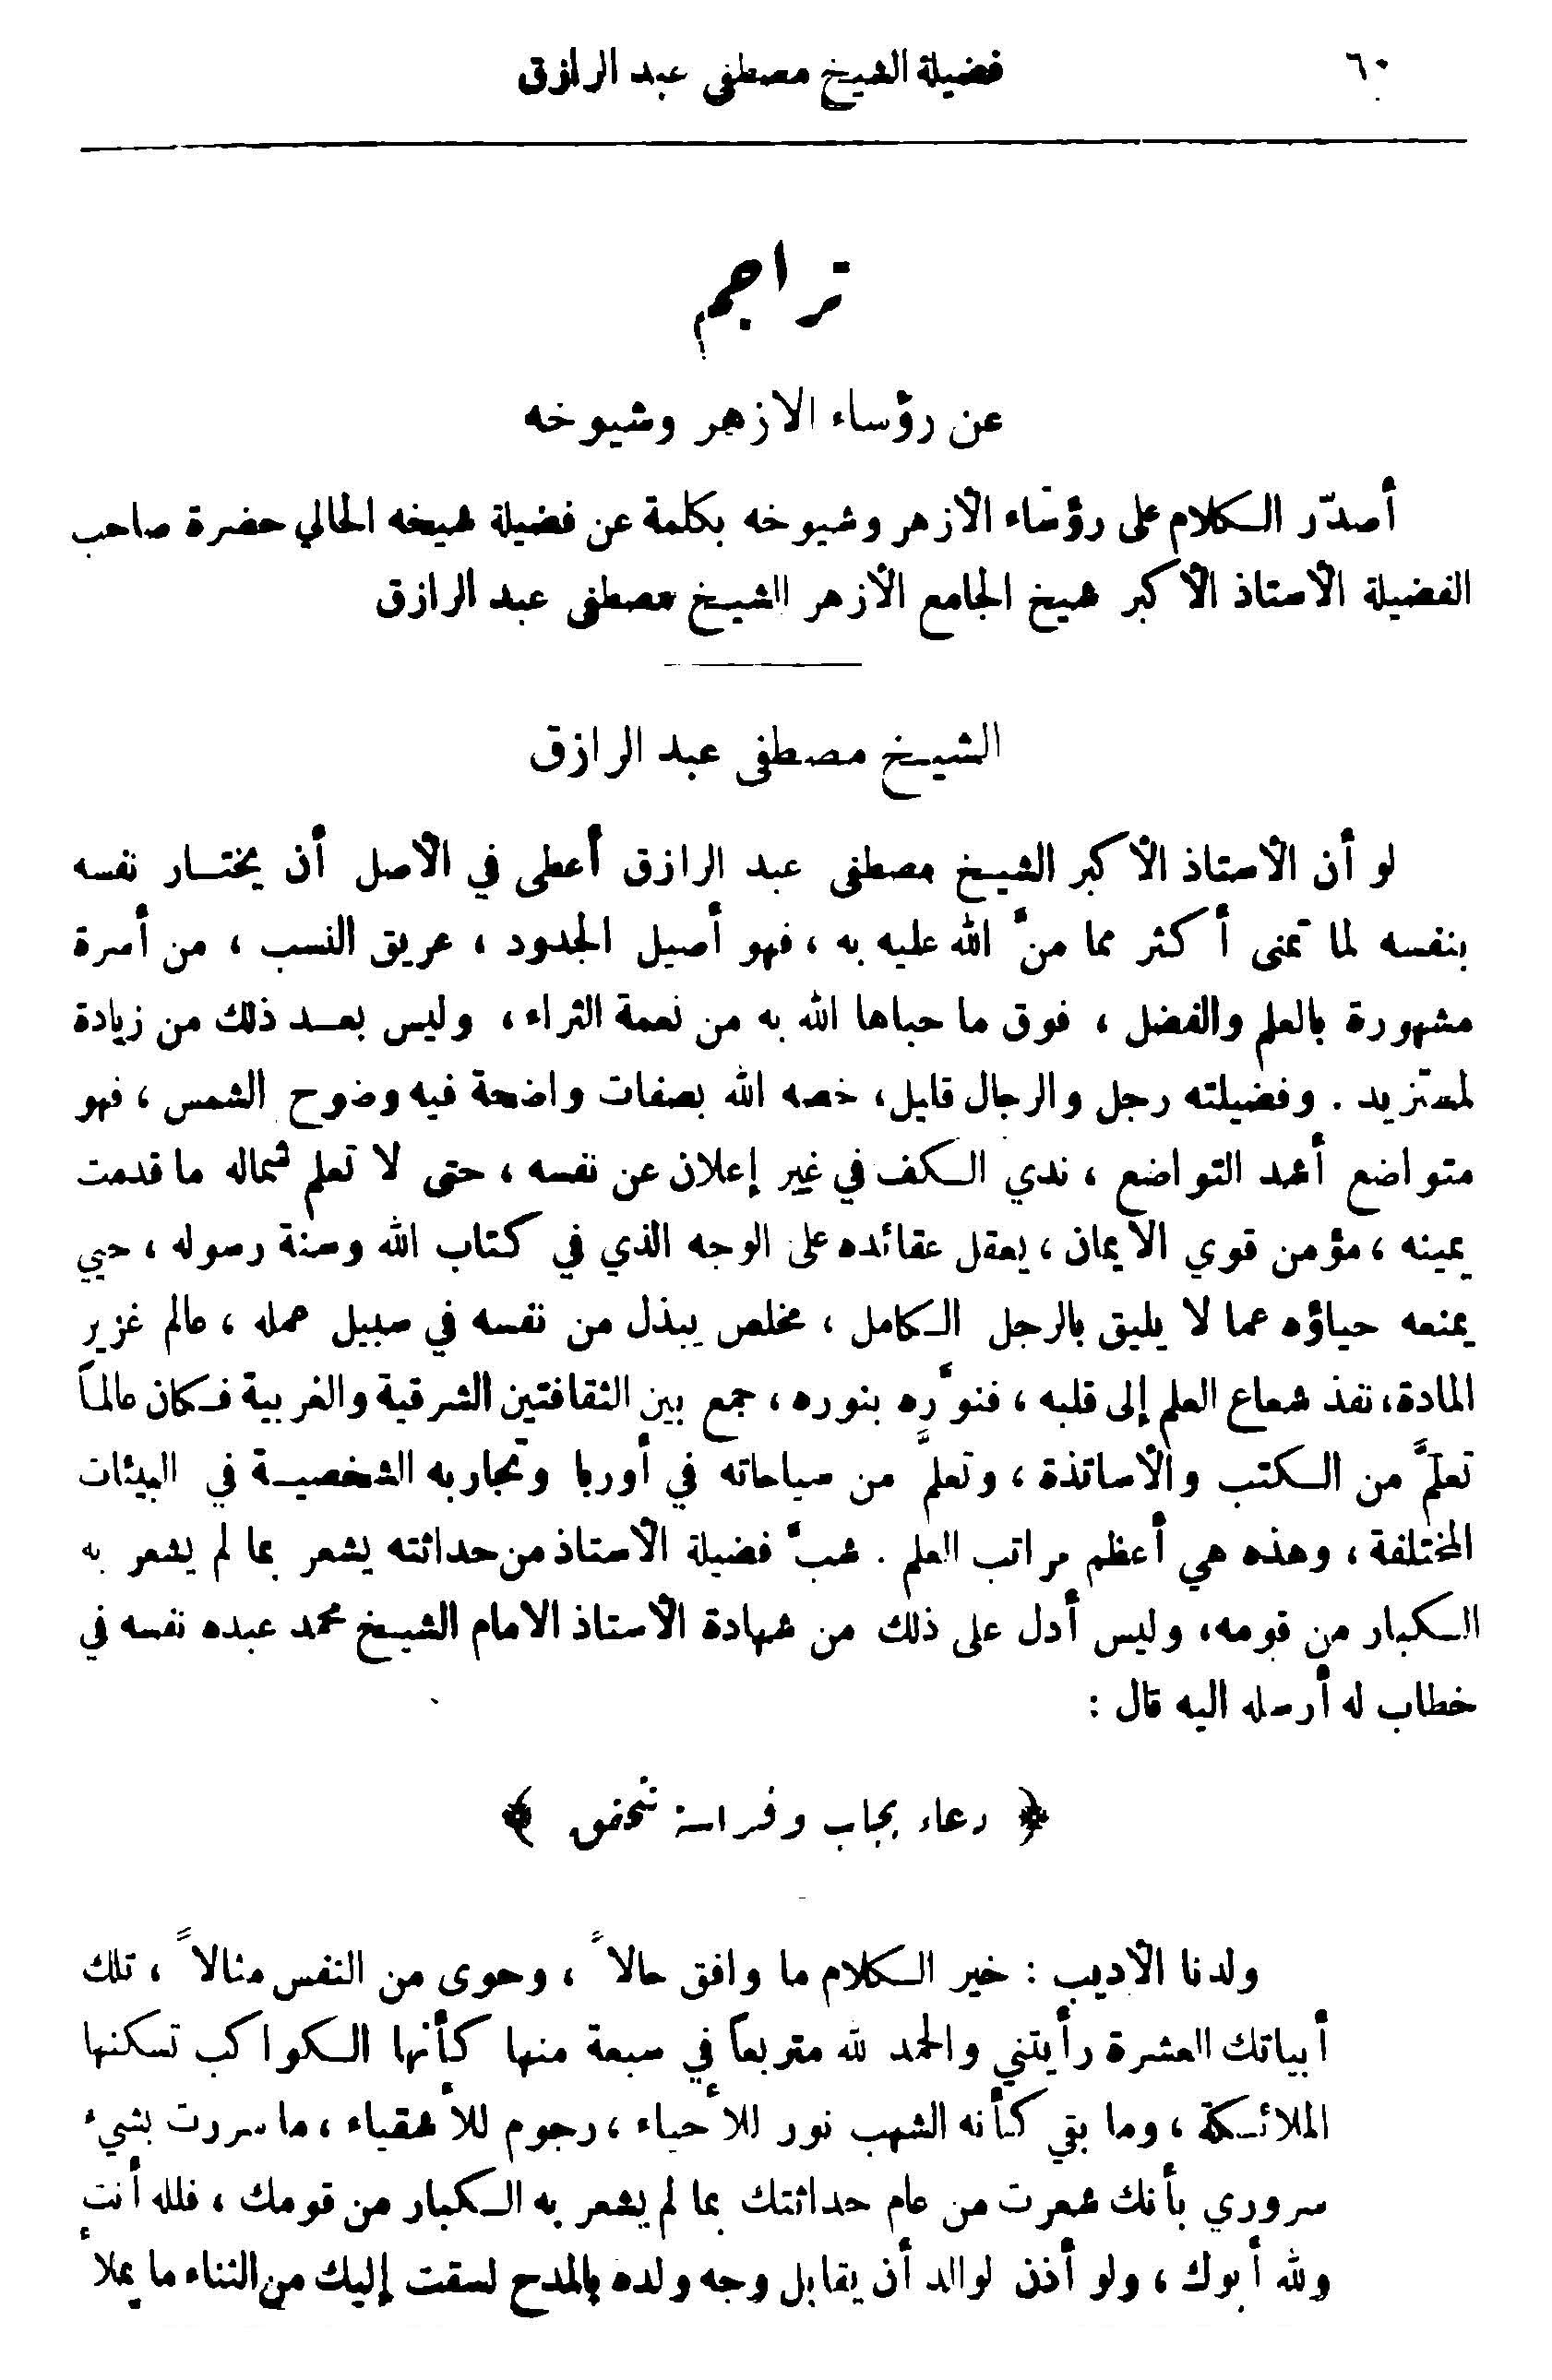 ٦٠
فضيلة الشيخ مصطفى عبد الرازق
تراجم
عن رؤساء الازهر وشيوخه
أصدّر الكلام على رؤساء الأزهر وشيوخه بكلمة عن فضيلة شيخه الحالي حضرة صاحب
الفضيلة الأستاذ الأكبر شيخ الجامع الأزهر الشيخ مصطفى عبد الرازق
الشيخ مصطفى عبد الرازق
لو أن الأستاذ الأكبر الشيخ مصطفى عبد الرازق أعطى في الأصل أن يختار نفسه
بنفسه لما تمنى أكثر مما منَّ الله عليه به ، فهو أصيل الجدود ، عريق النسب ، من أسرة
مشهورة بالعلم والفضل ، فوق ما حباها الله به من نعمة الثراء ، وليس بعد ذلك من زيادة
لمستزيد . وفضيلته رجل والرجال قليل ، خصه الله بصفات واضحة فيه وضوح الشمس ، فهو
متواضع أشد التواضع ، ندي الكف في غير إعلان عن نفسه ، حتى لا تعلم شماله ما قدمت
يمينه ، مؤمن قوي الايمان ، يعقل عقائده على الوجه الذي في كتاب الله وسنة رسوله ، حيي
يمنعه حياؤه عما لا يليق بالرجل الكامل ، مخلص يبذل من نفسه في سبيل عمله ، عالم غزير
المادة ، نفذ شعاع العلم إلى قلبه ، فنوَّره بنوره ، جمع بين الثقافتين الشرقية والغربية فكان عالماً
تعلَّم من الكتب والأساتذة ، وتعلَّم من سياحاته في أوربا وتجاربه الشخصية في البيئات
المختلفة ، وهذه هي أعظم مراتب العلم . شبَّ فضيلة الأستاذ من حداثته يشعر بما لم يشعر به
الكبار من قومه ، وليس أدل على ذلك من شهادة الأستاذ الامام الشيخ محمد عبده نفسه في
خطاب له أرسله اليه قال :
﴿ دعاء يجاب وفراسة تتحقق ﴾
ولدنا الأديب : خير الكلام ما وافق حالاً ، وحوى من النفس مثالاً ، تلك
أبياتك العشرة رأيتني والحمد لله متربعاً في سبعة منها كأنها الكواكب تسكنها
الملائكة ، وما بقي كأنه الشهب نور للأحباء ، رجوم للأشقياء ، ما سررت بشيء
سروري بأنك شعرت من عام حداثتك بما لم يشعر به الكبار من قومك ، فلله أنت
ولله أبوك ، ولو أذن لوالد أن يقابل وجه ولده بالمدح لسقت إليك من الثناء ما يملأ